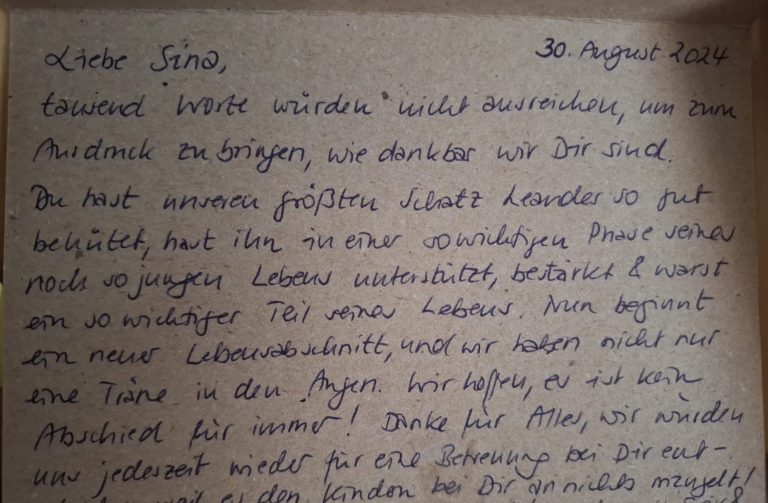 Liebe Sina,
30. August 2024
tausend Worte würden nicht ausreichen, um zum
Ausdruck zu bringen, wie dankbar wir Dir sind.
Du hast unseren größten Schatz Leander so gut
behütet, hast ihn in einer so wichtigen Phase seines
noch so jungen Lebens unterstützt, bestärkt & warst
ein so wichtiger Teil seines Lebens. Nun beginnt
ein neuer Lebensabschnitt, und wir haben nicht nur
eine Träne in den Augen. Wir hoffen, es ist kein
Abschied für immer! Danke für Alles, wir würden
uns jederzeit wieder für eine Betreuung bei Dir ent-
weil es den Kindern bei Dir an nichts mangelt!